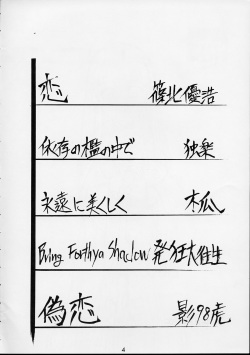 恋 篠北優浩
依存の檻の中で 独楽
永遠に美しく 木瓜
Bring Forthya Shadow 発狂大往生
偽恋 影98虎
4